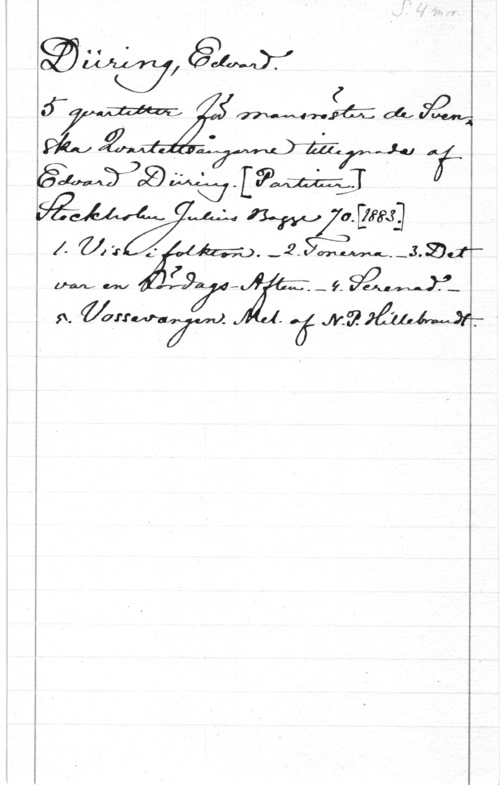 S. 4 mnr.
Düring, Edvard.
5 quartetter för mansröster de Sven-
ska Quartettsångarne tillegnade af
Edvard Düring. [Partitur.]
Stockholm Julius Bagge 70. [1883.]
1. Visa i folkton. _ 2. Tonerna. _ 3. Det
var en Lördags-Aften. _ 4. Serenad. _
5. Vossevangen. Mel. af N. P. Hillebrandt.